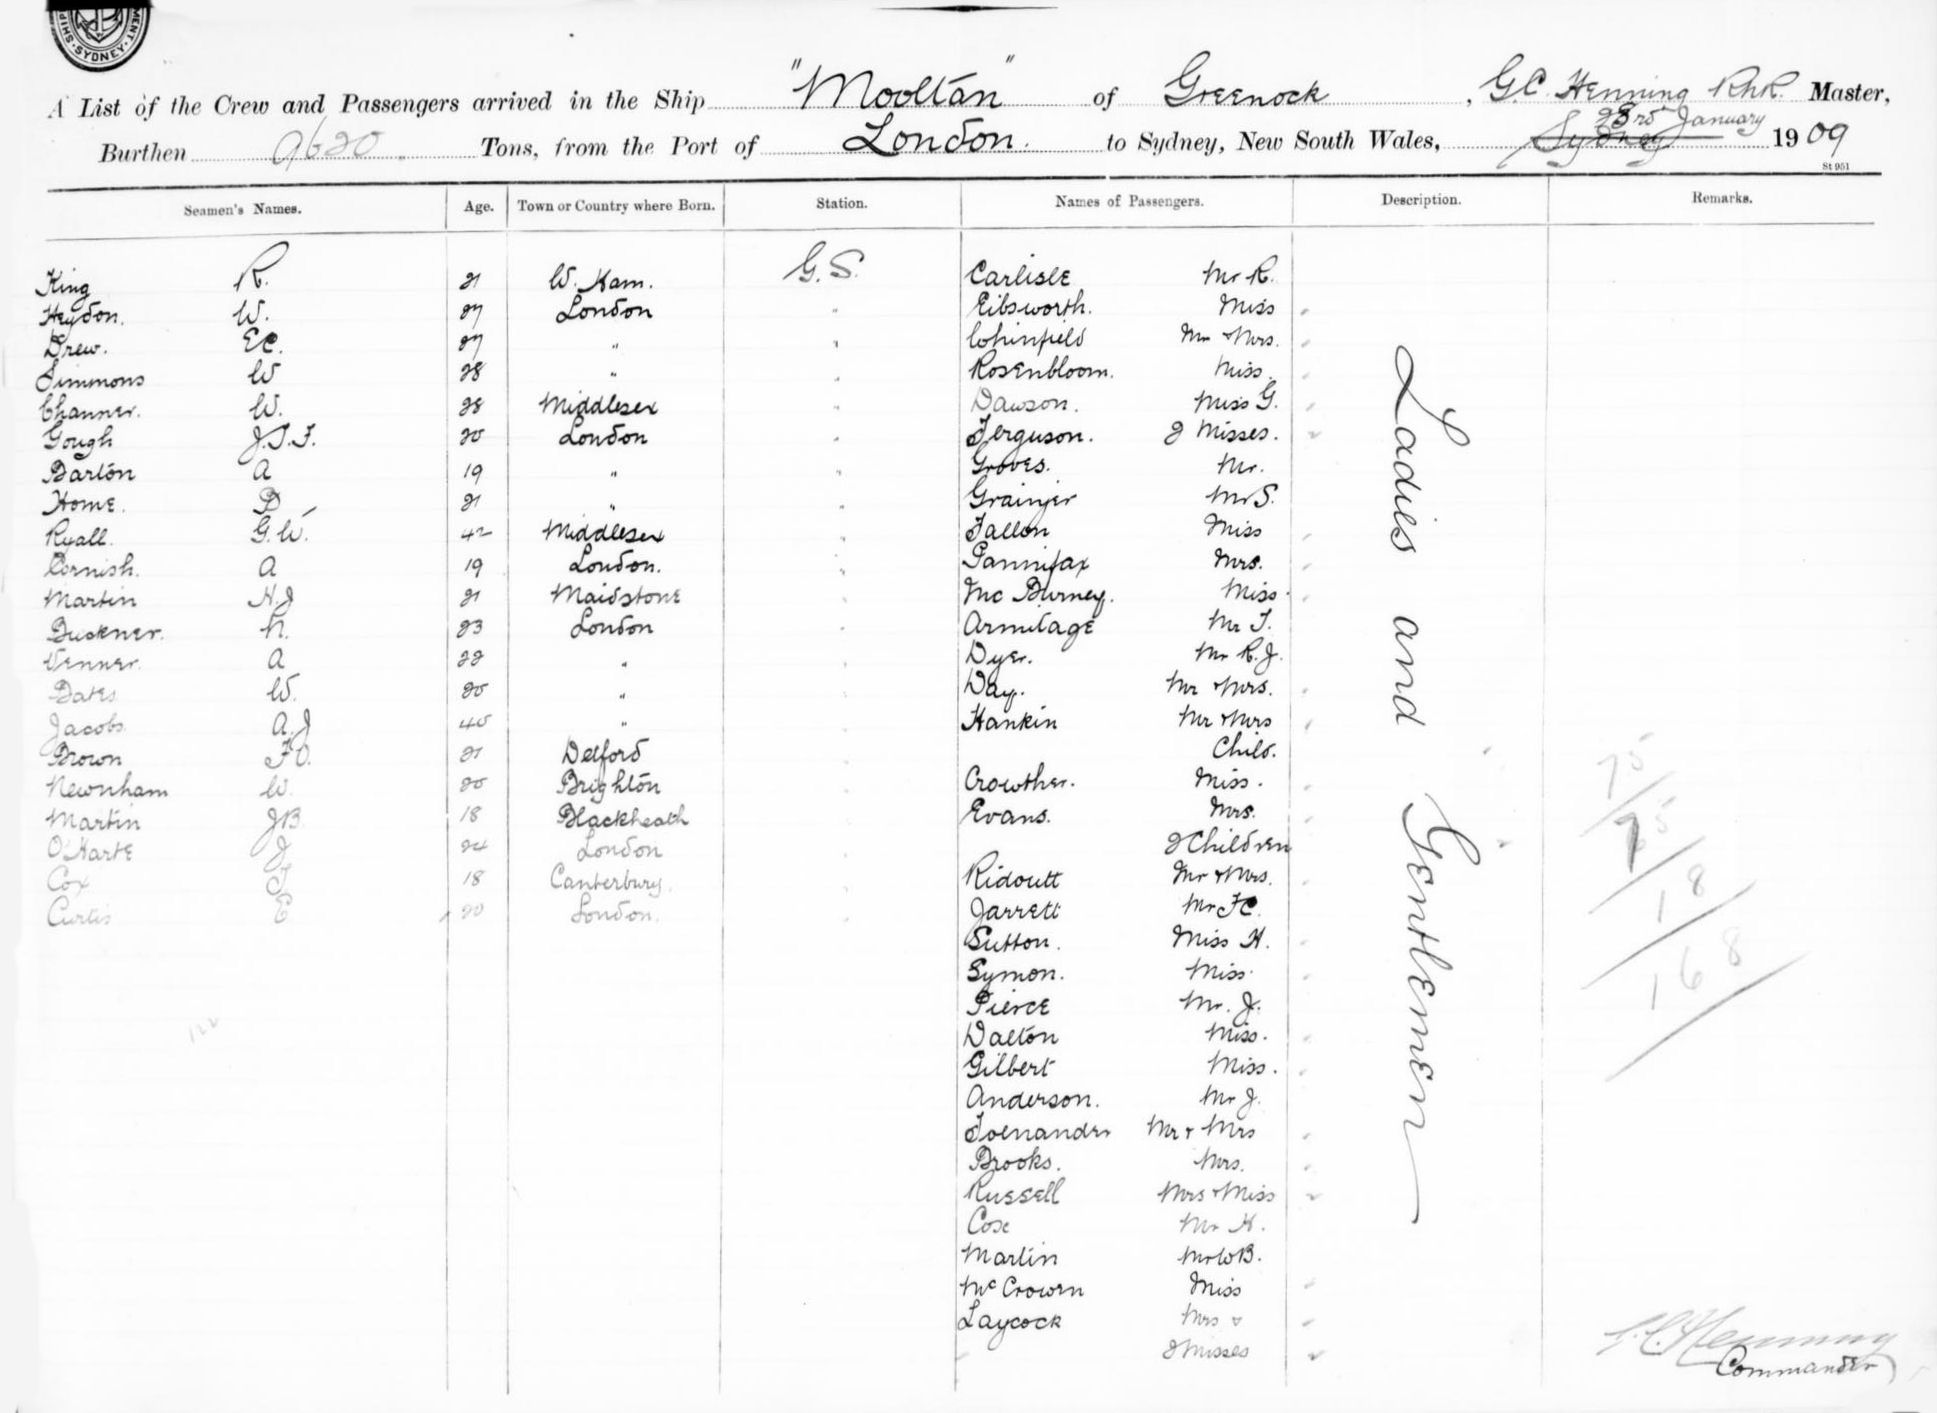 SHIP MENT
· SYDNEY ·
A List of the Crew and Passengers arrived in the Ship "Mooltan" of Greenock, G.C. Henning R.N.R. Master,
Burthen 9620 Tons, from the Port of London. to Sydney, New South Wales, Sydney 23rd January 1909
St 951
Seamen's Names. Age. Town or Country where Born. Station. Names of Passengers. Description. Remarks.
King R. 21 W. Ham. G.S. Carlisle Mr R.
Heydon. W. 27 London " Eibsworth. Miss
Drew. EC. 27 " " Whinfield Mr & Mrs.
Simmons W 28 " " Rosenbloom. Miss.
Channer. W. 28 Middlesex " Dawson. Miss G.
Gough J.T.F. 20 London " Ferguson. 2 Misses.
Barton A 19 " " Groves. Mr.
Home. D 21 " " Grainger Mr S.
Ryall. G.W. 42 Middlesex " Fallon Miss
Cornish. A 19 London. " Pannifax Mrs.
Martin H.J 21 Maidstone " Mc Burney. Miss
Buckner. N. 23 London " Armitage Mr T.
Venner. A 22 " " Dyer. Mr R.J.
Bates W. 20 " " Day. Mr & Mrs.
Jacobs A.J 40 " " Hankin Mr & Mrs
Brown F.O. 21 Detford " Child.
Newnham W. 20 Brighton " Crowther. Miss.
Martin J.B. 18 Blackheath " Evans. Mrs.
O'Harte J 24 London " 2 Children
Cox F 18 Canterbury. " Ridoutt Mr & Mrs.
Curtis E 20 London. " Jarrett Mr F.C.
Sutton. Miss H.
Symon. Miss.
Pierce Mr. J.
Dalton Miss.
Gilbert Miss.
Anderson. Mr J.
Mr & Mrs
Brooks. Mrs.
Russell Mrs & Miss
Cox Mr H.
Martin Mr W.B.
McCrowen Miss
Laycock Mrs &
2 Misses
Ladies and Gentlemen
75
75
18
168
122
G.C. Henning
Commander